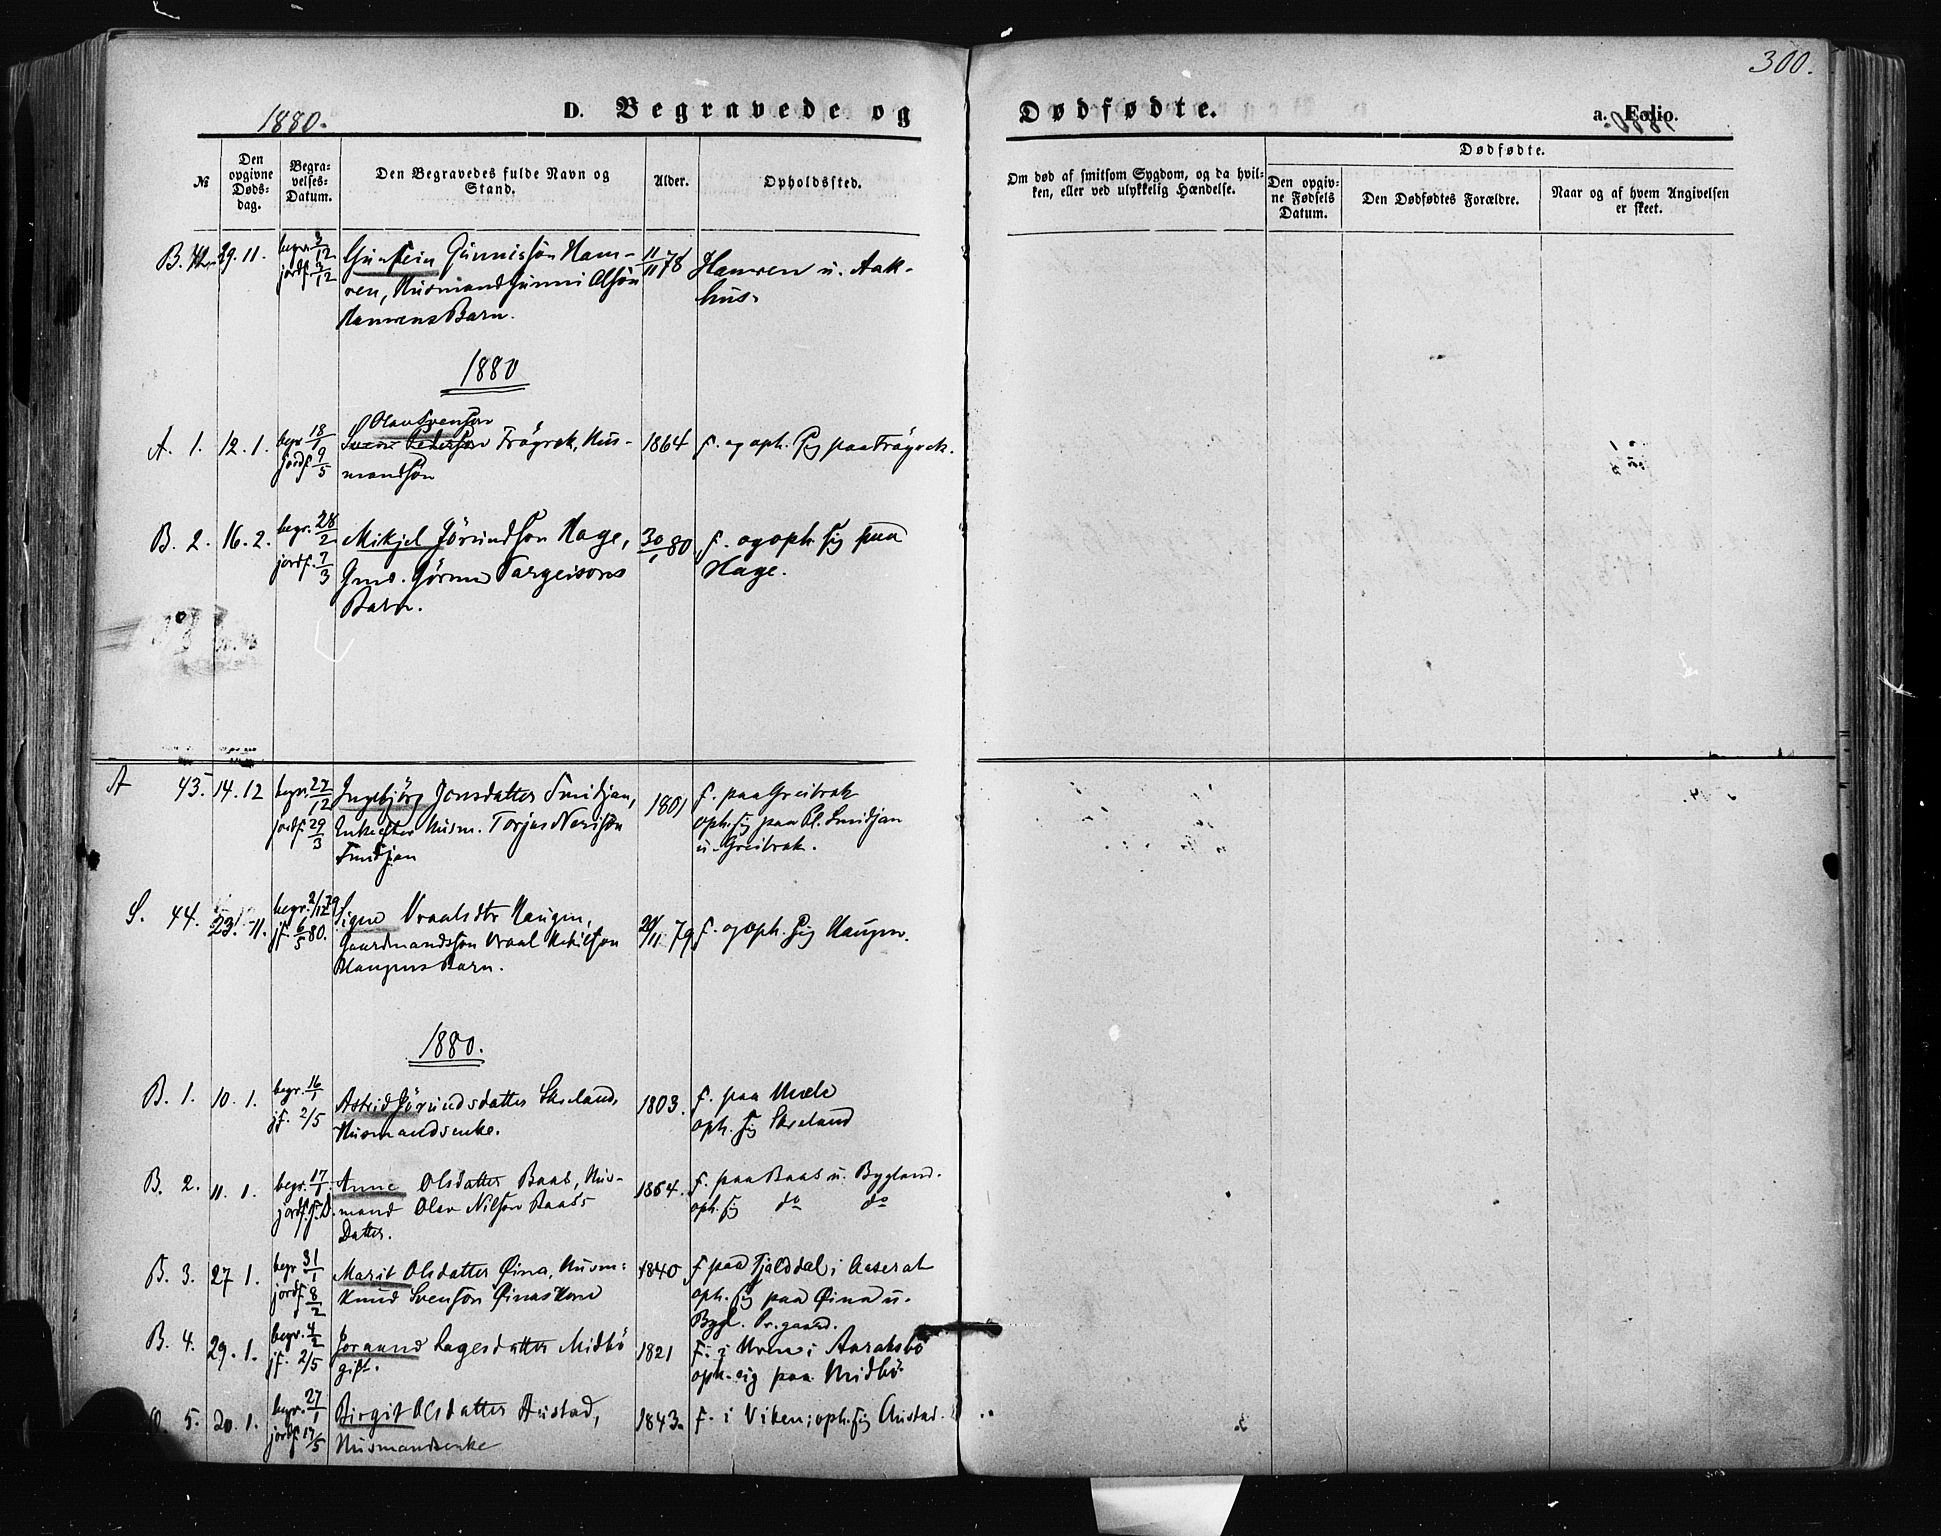 300.
1880.
D. Begravede og Dødfødte.
a. Folio.
№
Den opgivne Døds-dag.
Begra-velses-Datum.
Den Begravedes fulde Navn og Stand.
Alder.
Opholdssted.
Om død af smitsom Sygdom, og da hvil-
ken, eller ved ulykkelig Hændelse.
Dødfødte.
Den opgiv-
ne Fødsels
Datum.
Den Dødfødtes Forældre.
Naar og af hvem Angivelsen
er skeet.
B. 29. 11. begr. 3/12 Gunstein Gunnissøn Ham- 11/11 78 Hamren u. Aak-
jordf. 3/12 ren, Husmand Gunni Olsøn hus.
Hamrens Barn.
1880
Olav Svenson
A. 1. 12. 1. begr. 18/1 Trøgrok, Hus- 1864 f. og oph. sig paa Trøgrok.
jordf. 9/5 mandssøn
B. 2. 16. 2. begr. 28/2 Mikjel Jørundson Hage, 30/1 80 f. og oph. sig paa
jordf. 7/3 Gmd. Targeisons Hage.
Barn.
A 43. 14. 12 begr. 27/12 Ingebjørg Jonsdatter Smidjan, 1801 f. paa Greibrok
jordf. 29/3 Enke efter Husm. Torjus Nerisøn oph. sig paa Pl. Smidjan
Smidjan u. Greibrok.
S. 44. 23. 11. begr. 2/12 79 Signe Vraalsdtr Haugen, 20/11 79 f. og oph. sig Haugen.
jf. 6/5 80. Gaardmandssøn Vraal
Haugens Barn.
1880.
B. 1. 10. 1. begr. 16/1 Astrid Jørundsdatter Skreland, 1803. f. paa
jf. 2/5 Husmandsenke. oph. sig Skreland
B. 2. 11. 1. begr. 17/1 Anne Olsdatter Baas, Hus- 1864. f. paa Baas u. Bygland.
jordf. s. D. mand Olav Nilson Baas's oph. sig do do
Datter.
B. 3. 27 1. begr 31/1 Marit Olsdatter Øina, Husm: 1840 f. paa Tjalddal i Aaserat
jordf 8/2 Knud Svenson Øinas Kone oph. sig paa Øina u.
Bygl. Pr.gaard.
B. 4. 29. 1. begr. 4/2 Joraand Lagesdatter Midbø 1821 F. i i Aaraksbø
jf. 2/5 gift. oph. sig paa Midbø
5. 20. 1. begr. 27/1 Birgit Olsdatter Austad, 1843. f. i Viken; oph. sig Austad.
jordf 17/5 Husmandsenke